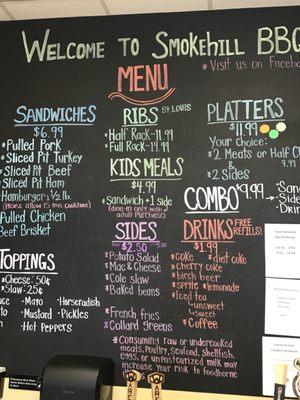 Welcome to Smokehill BBQ
*Visit us on Facebo
MENU
SANDWICHES
$6.99
*Pulled Pork
*Sliced Pit Turkey
Sliced Pit Beef
Sliced Pit Ham
Hamburger 1/2 lb.
(Please allow 15 min cooktime)
Pulled Chicken
Beef Brisket
TOPPINGS
*Cheese: 50¢
*Slaw: 25¢
*Mayo *Horseradish
*Mustard *Pickles
*Hot Peppers
RIBS St. Louis
*Half Rack-11.99
*Full Rack-19.99
KIDS MEALS
$4.99
*Sandwich + 1 side
(dine-in only with
adult purchase)
SIDES
$2.50
*Potato Salad
*Mac & Cheese
*Cole slaw
*Baked beans
*French fries
*Collard greens
PLATTERS
$11.99
Your choice:
*2 Meats or Half C
&
*2 Sides
COMBO $9.99
DRINKS FREE REFILLS!
$1.99
*coke *diet coke
*cherry coke
*birch beer
*sprite *lemonade
*Iced tea
*unsweet
*sweet
*Coffee
*Consuming raw or undercooked
meats, poultry, seafood, shellfish,
eggs, or unpasteurized milk may
increase your risk to foodborne